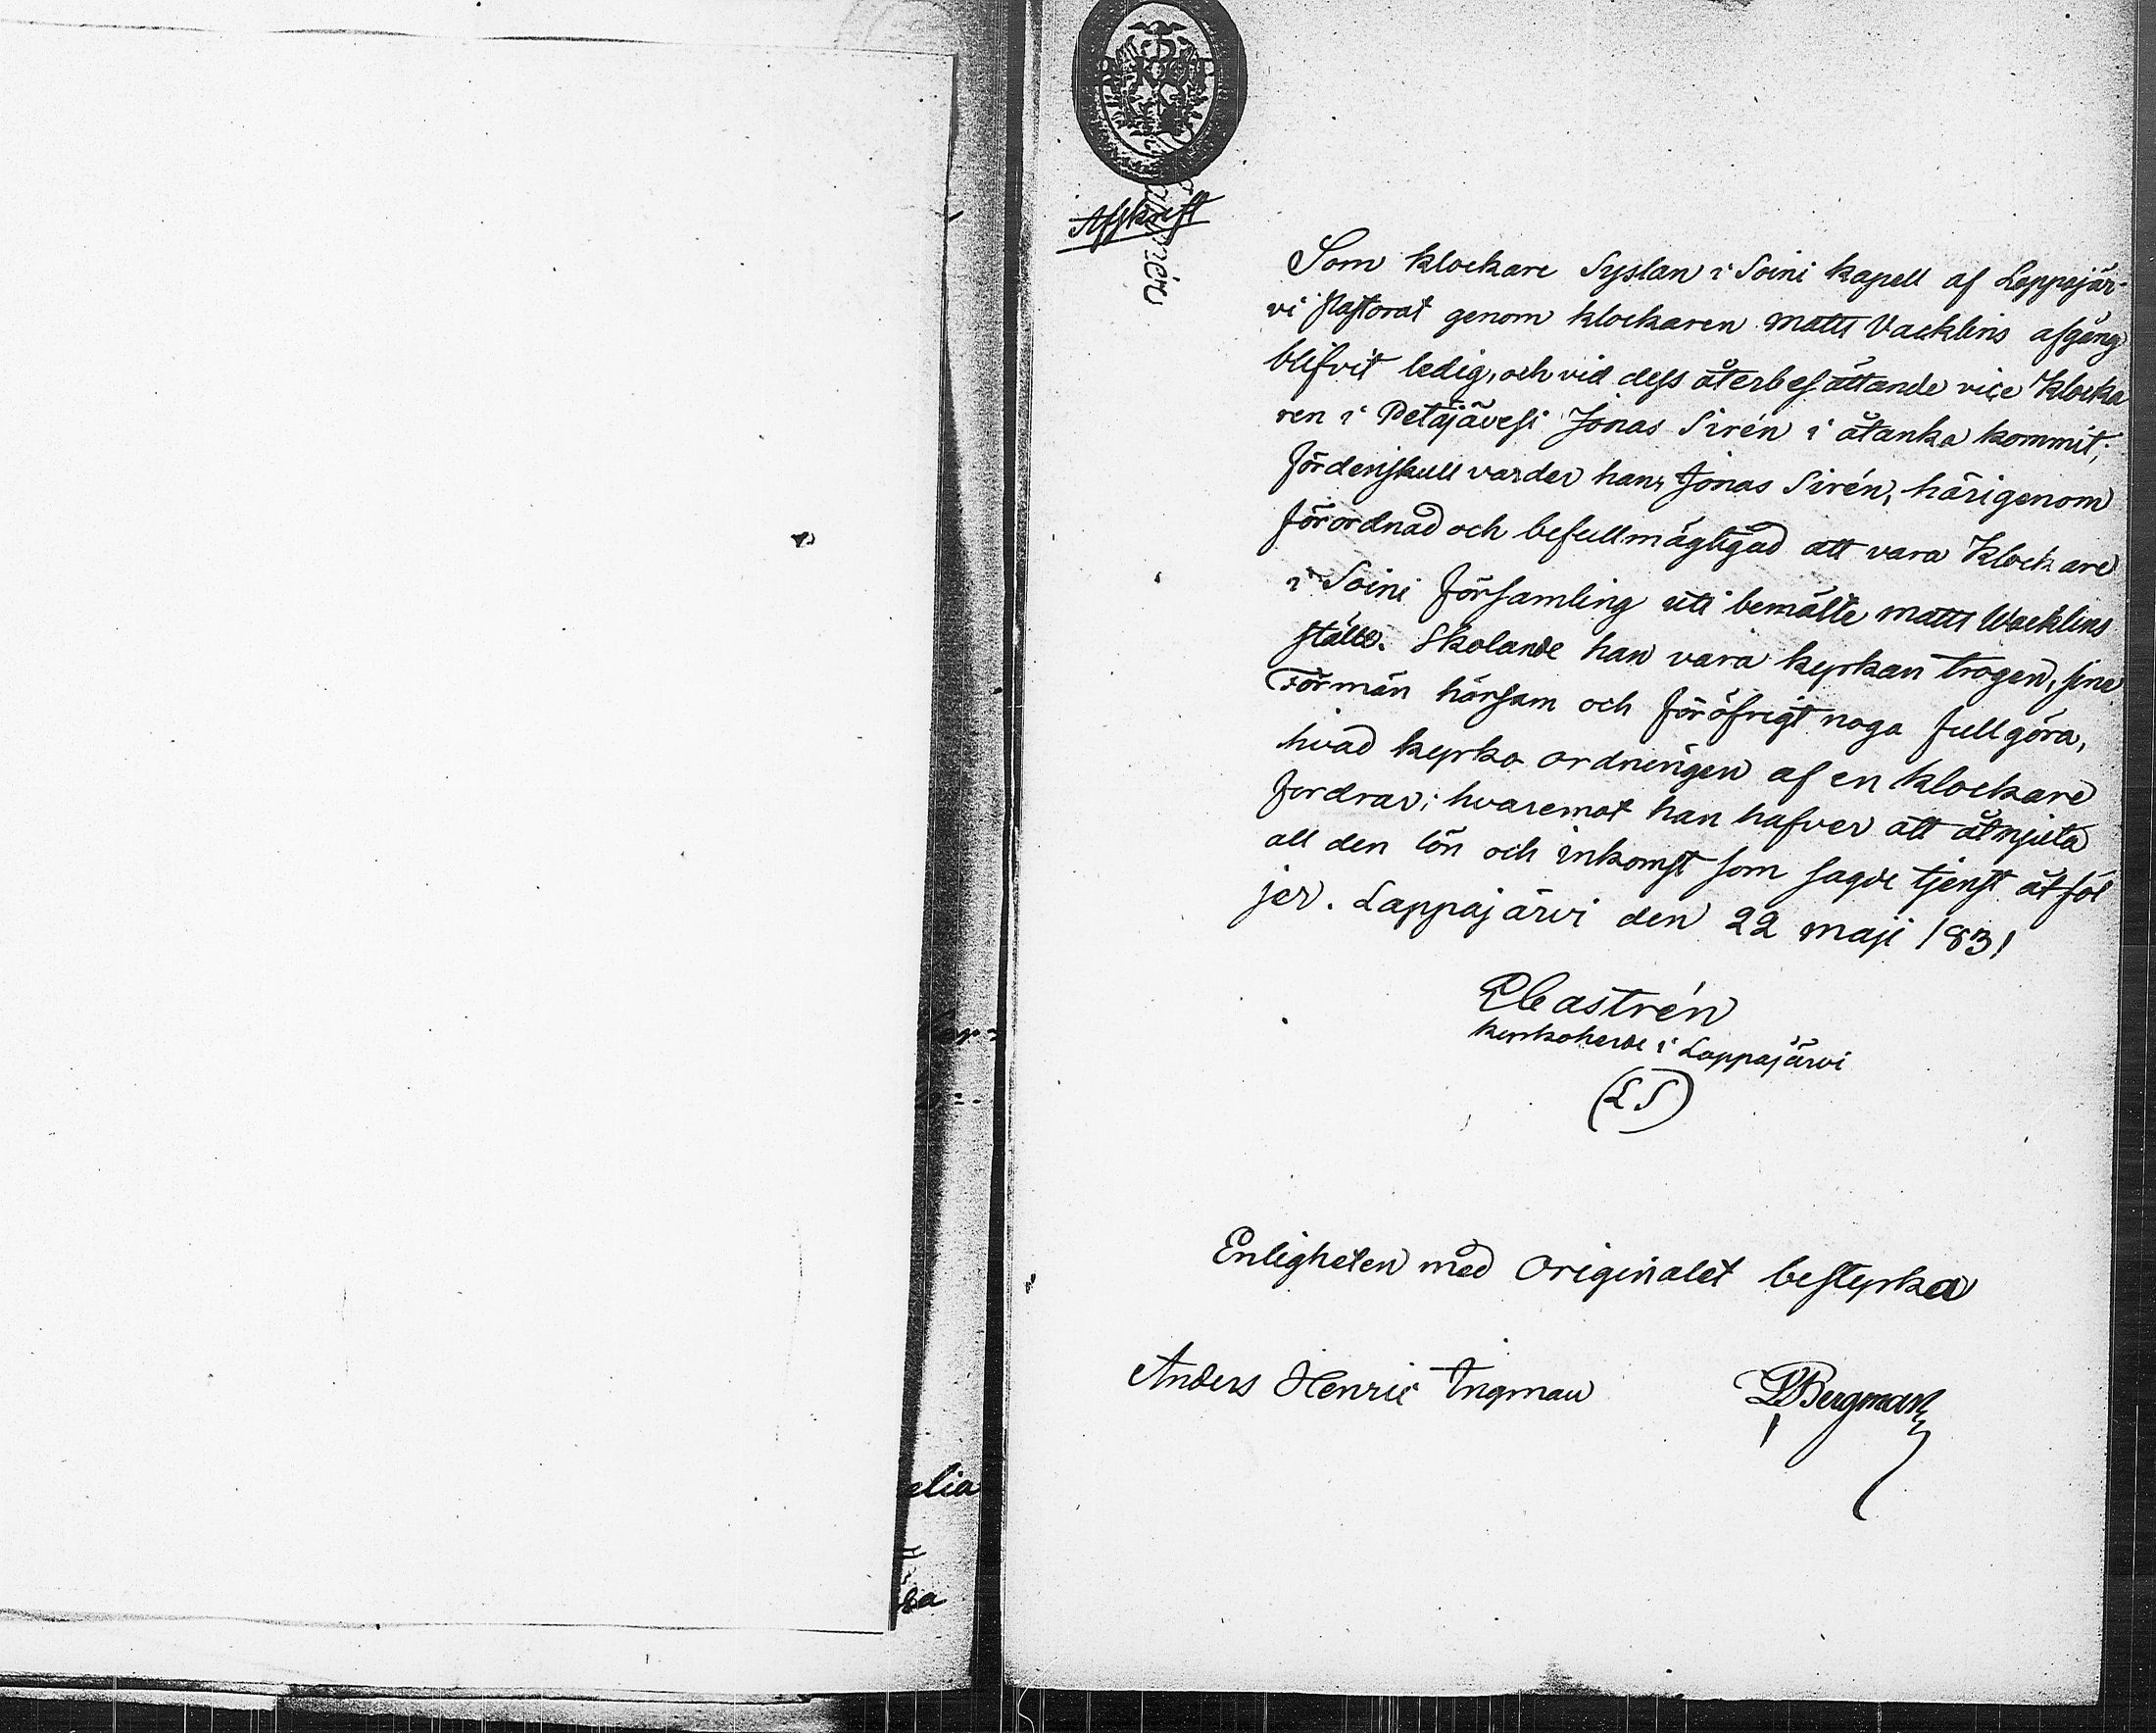 Afskrift
Som klockare Syslan i Soini kapell af Lappajär-
vi Pastorat genom klockaren Matts Vacklins afgång
blifvit ledig, och vid dess återbesättande vice Klocka
ren i Petäjävesi Jonas Sirén i åtanka kommit;
fördenskull varder han, Jonas Sirén, härigenom
förordnad och befullmägtigad att vara Klockare
i Soini församling uti bemälte Matts Wacklins
ställe. Skolande han vara kyrkan trogen, sine
Förmän hörsam och föröfrigt noga fullgöra,
hvad kyrko ordningen af en klockare
fordrar; hvaremot han hafver att åtnjuta
all den lön och inkomst som sagde tjenst åtföl
jer. Lappajärvi den 22 Maji 1831
Castrén
Kyrkoherde i Lappajärvi
(LS)
Enligheten med Originalet bestyrka
Anders Henric Ingman
Bergman
elia